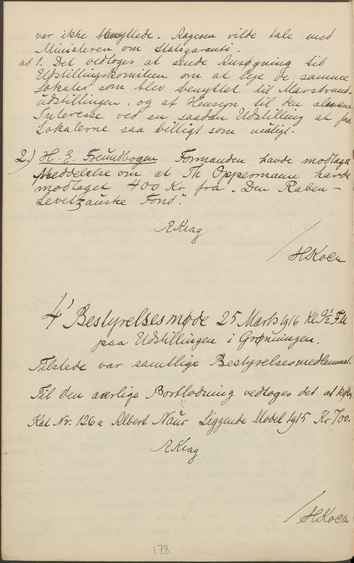 var ikke benyttede. Ragem vilde tale med
Ministeren om Statsgaranti.
at 1. Det vedtoges at sende Ansøgning til
Udstillingskomiteen om at leje de samme
Lokaler som blev benyttet til Marstrand-
udstillingen, og af Hensyn til den
Interesse ved en saadan Udstilling at faa
Lokalerne saa billigt som muligt.
2) H. E. Freundbogen Formanden havde modtaget
Meddelelse om at Th Oppermann havde
modtaget 400 Kr. fra "Den Raben-
Levetzauske Fond".
AKrag
/HKoch
4' Bestyrelsesmøde 25 Marts 1916 Kl. 9½ F.M.
paa Udstillingen i Grønningen.
Tilstede var samtlige Bestyrelsesmedlemmer.
Til den aarlige Bortlodning vedtoges det at
Kat Nr. 126a Albert Naur Liggende Model 1915 Kr 700.
AKrag
/HKoch
178